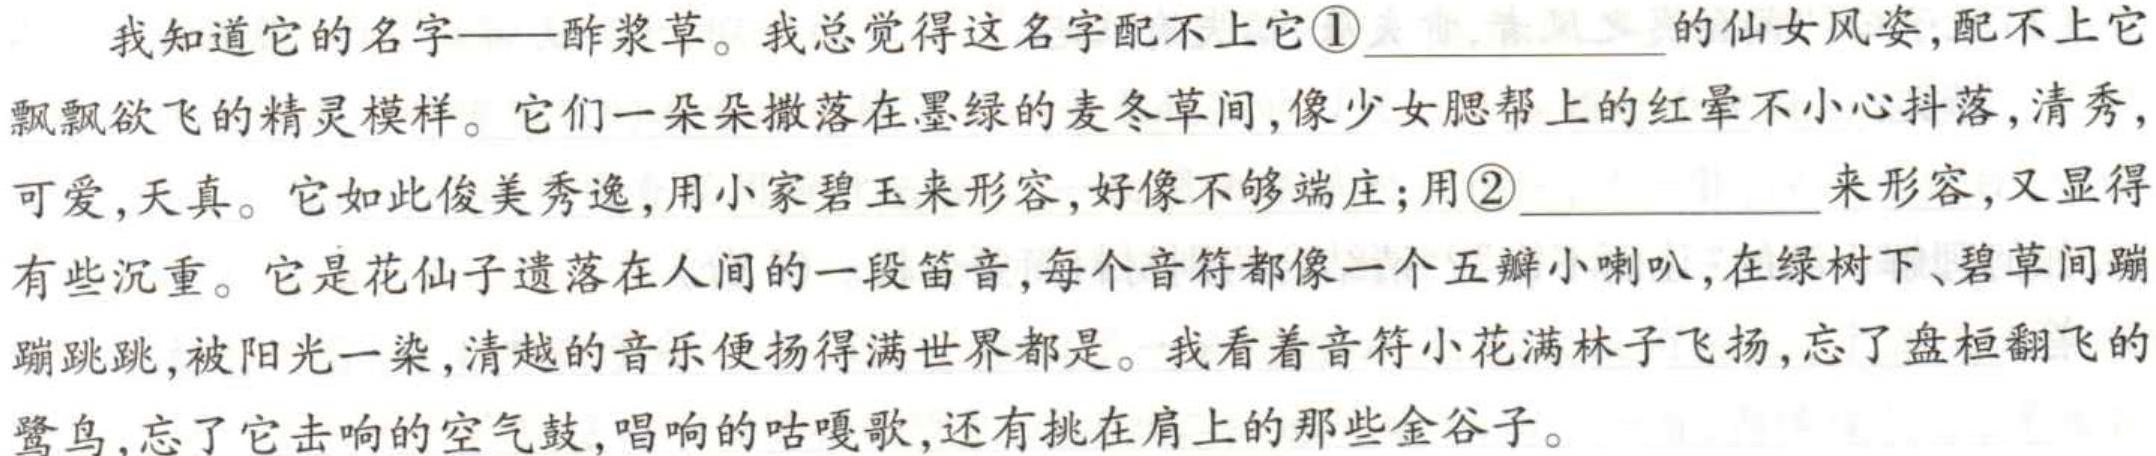 我知道它的名字——酢浆草。我总觉得这名字配不上它①__________的仙女风姿,配不上它
飘飘欲飞的精灵模样。它们一朵朵撒落在墨绿的麦冬草间,像少女腮帮上的红晕不小心抖落,清秀,
可爱,天真。它如此俊美秀逸,用小家碧玉来形容,好像不够端庄;用②__________来形容,又显得
有些沉重。它是花仙子遗落在人间的一段笛音,每个音符都像一个五瓣小喇叭,在绿树下、碧草间蹦
蹦跳跳,被阳光一染,清越的音乐便扬得满世界都是。我看着音符小花满林子飞扬,忘了盘桓翻飞的
鹭鸟,忘了它击响的空气鼓,唱响的咕嘎歌,还有挑在肩上的那些金谷子。